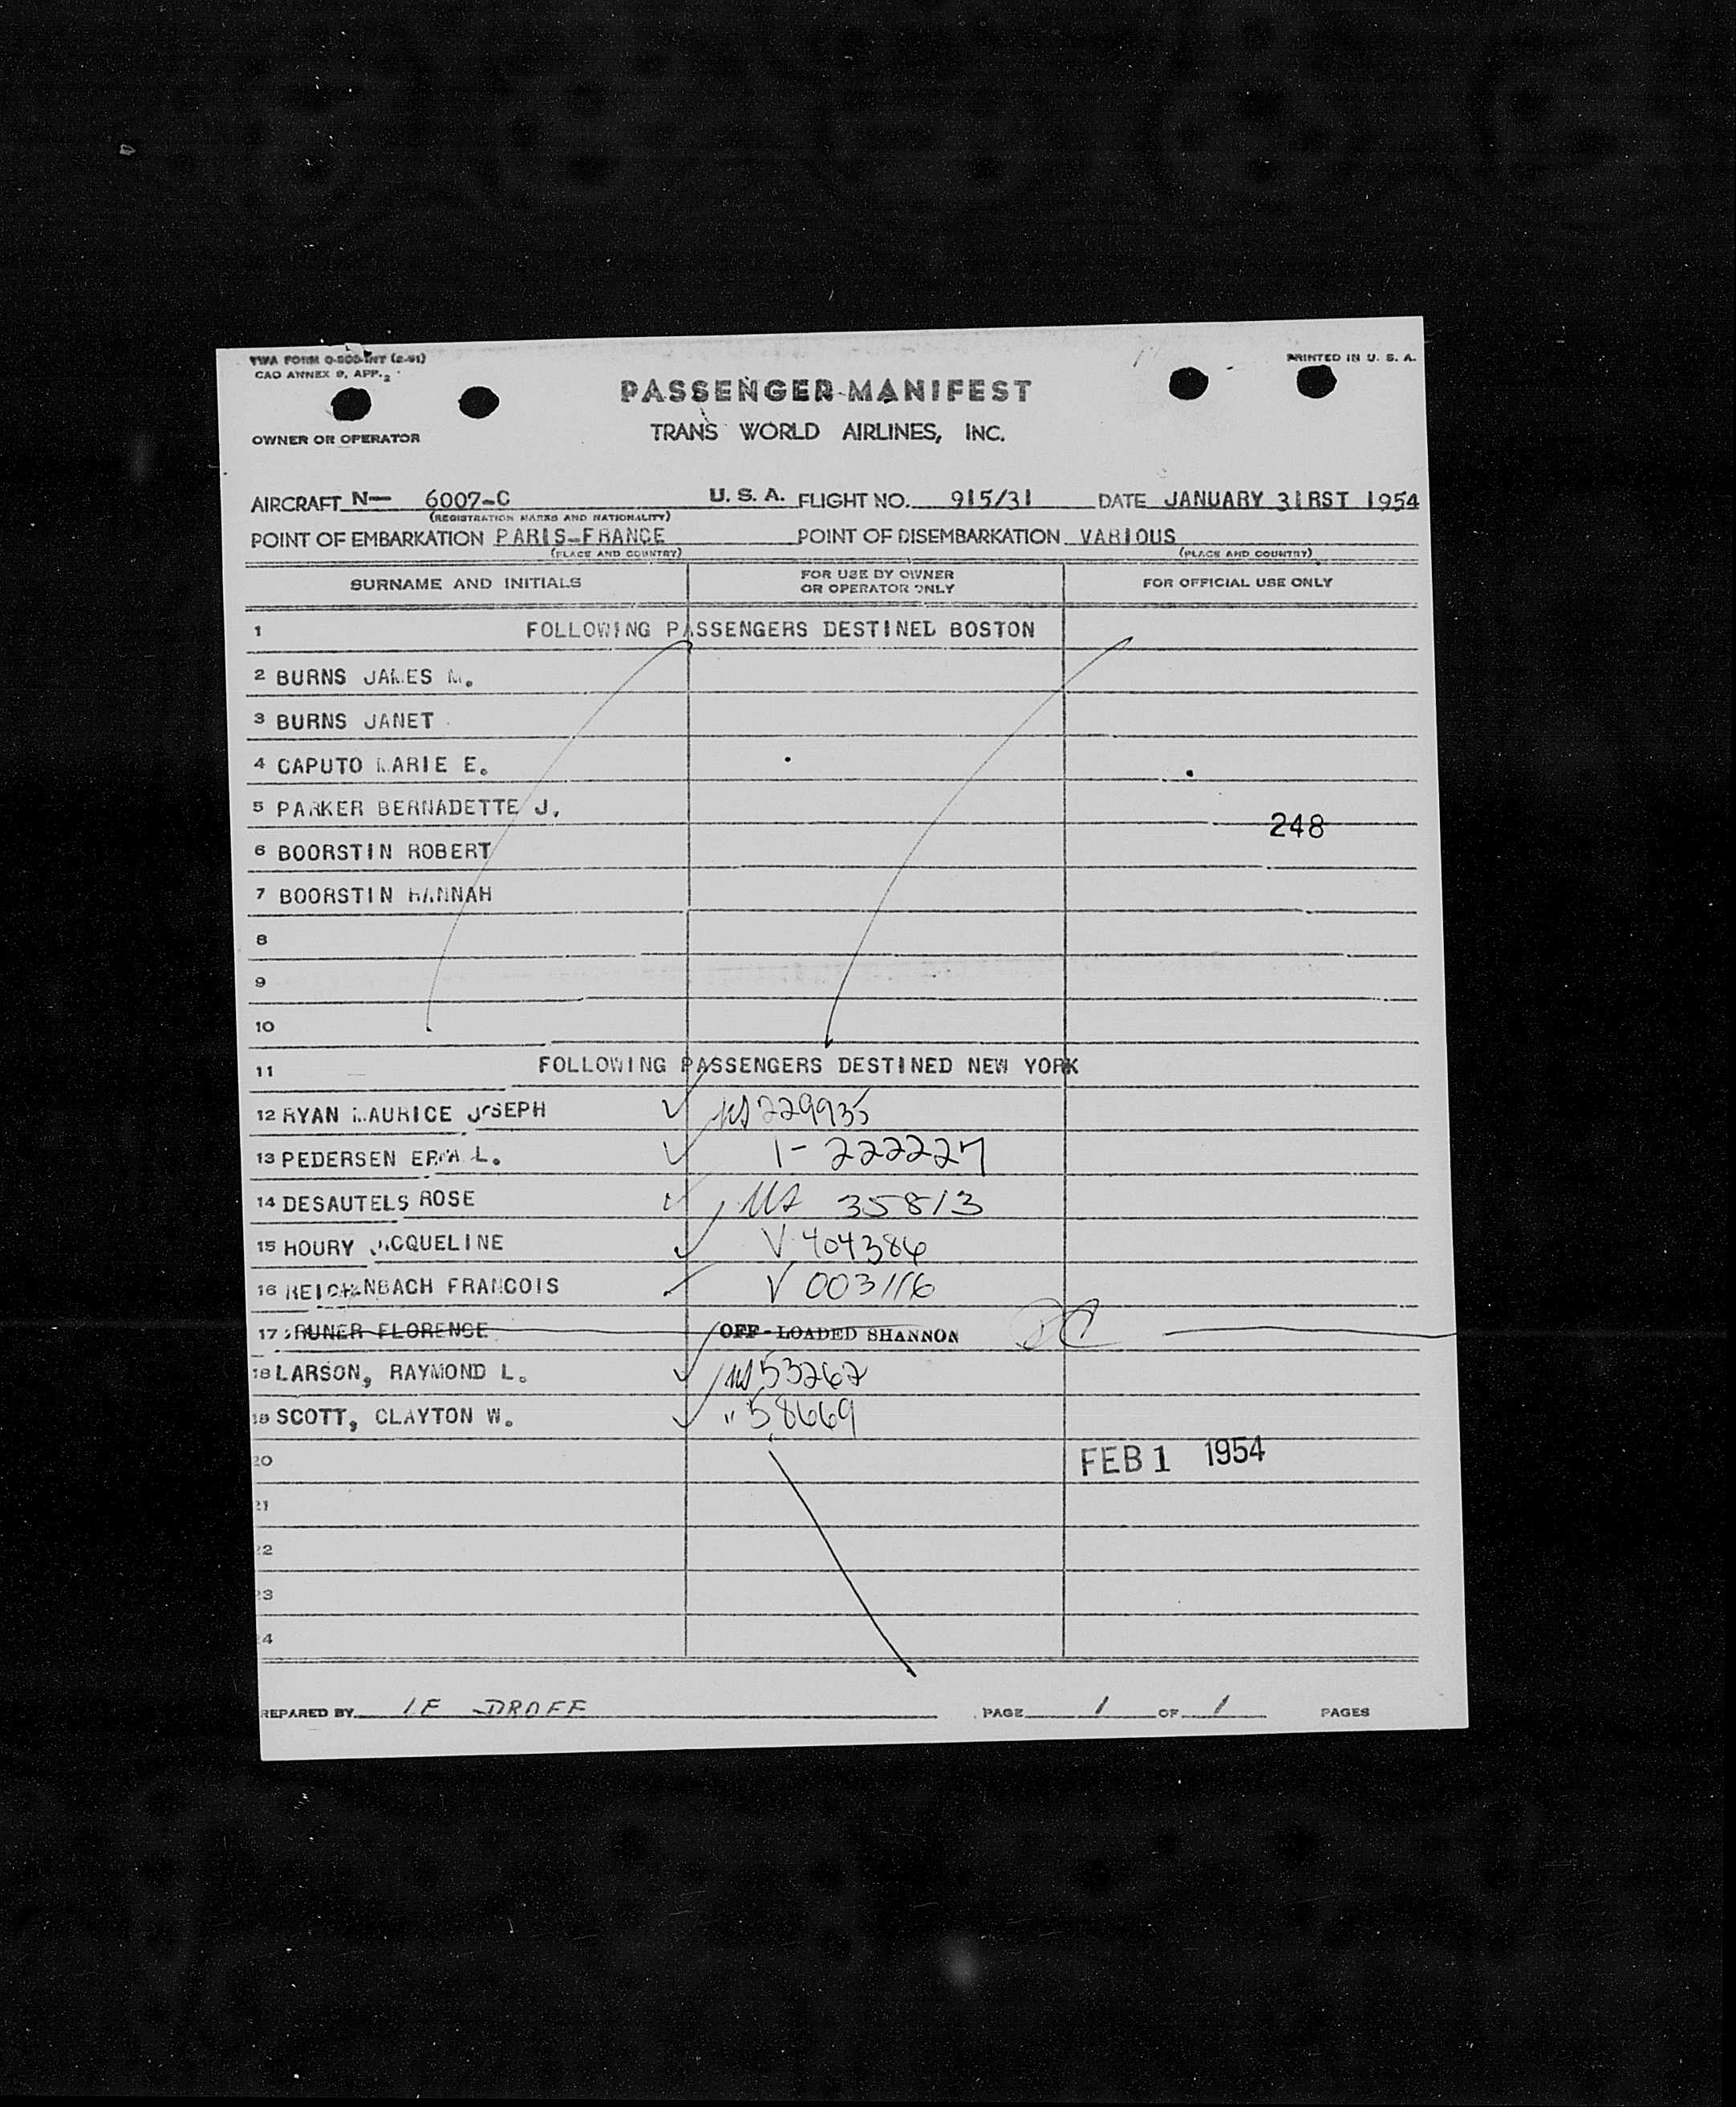 TWA FORM O-500-INT (2-51)
CAO ANNEX 9, APP. 2
PRINTED IN U. S. A.
PASSENGER MANIFEST
OWNER OR OPERATOR
TRANS WORLD AIRLINES, INC.
AIRCRAFT N— 6007-C U. S. A. FLIGHT NO. 915/31 DATE JANUARY 31RST 1954
(REGISTRATION MARKS AND NATIONALITY)
POINT OF EMBARKATION PARIS-FRANCE POINT OF DISEMBARKATION VARIOUS
(PLACE AND COUNTRY) (PLACE AND COUNTRY)
SURNAME AND INITIALS FOR USE BY OWNER OR OPERATOR ONLY FOR OFFICIAL USE ONLY
1 FOLLOWING PASSENGERS DESTINED BOSTON
2 BURNS JAMES M.
3 BURNS JANET
4 CAPUTO MARIE E.
5 PARKER BERNADETTE J.
248
6 BOORSTIN ROBERT
7 BOORSTIN HANNAH
8
9
10
11 FOLLOWING PASSENGERS DESTINED NEW YORK
12 RYAN MAURICE JOSEPH US 229935
13 PEDERSEN ERMA L. 1-222227
14 DESAUTELS ROSE US 35813
15 HOURY JACQUELINE V 404386
16 REICHENBACH FRANCOIS V 003116
17 RUNER FLORENCE OFF-LOADED SHANNON
18 LARSON, RAYMOND L. US 53262
19 SCOTT, CLAYTON W. " 58669
20 FEB 1 1954
21
22
23
24
REPARED BY LE DROFF PAGE 1 OF 1 PAGES